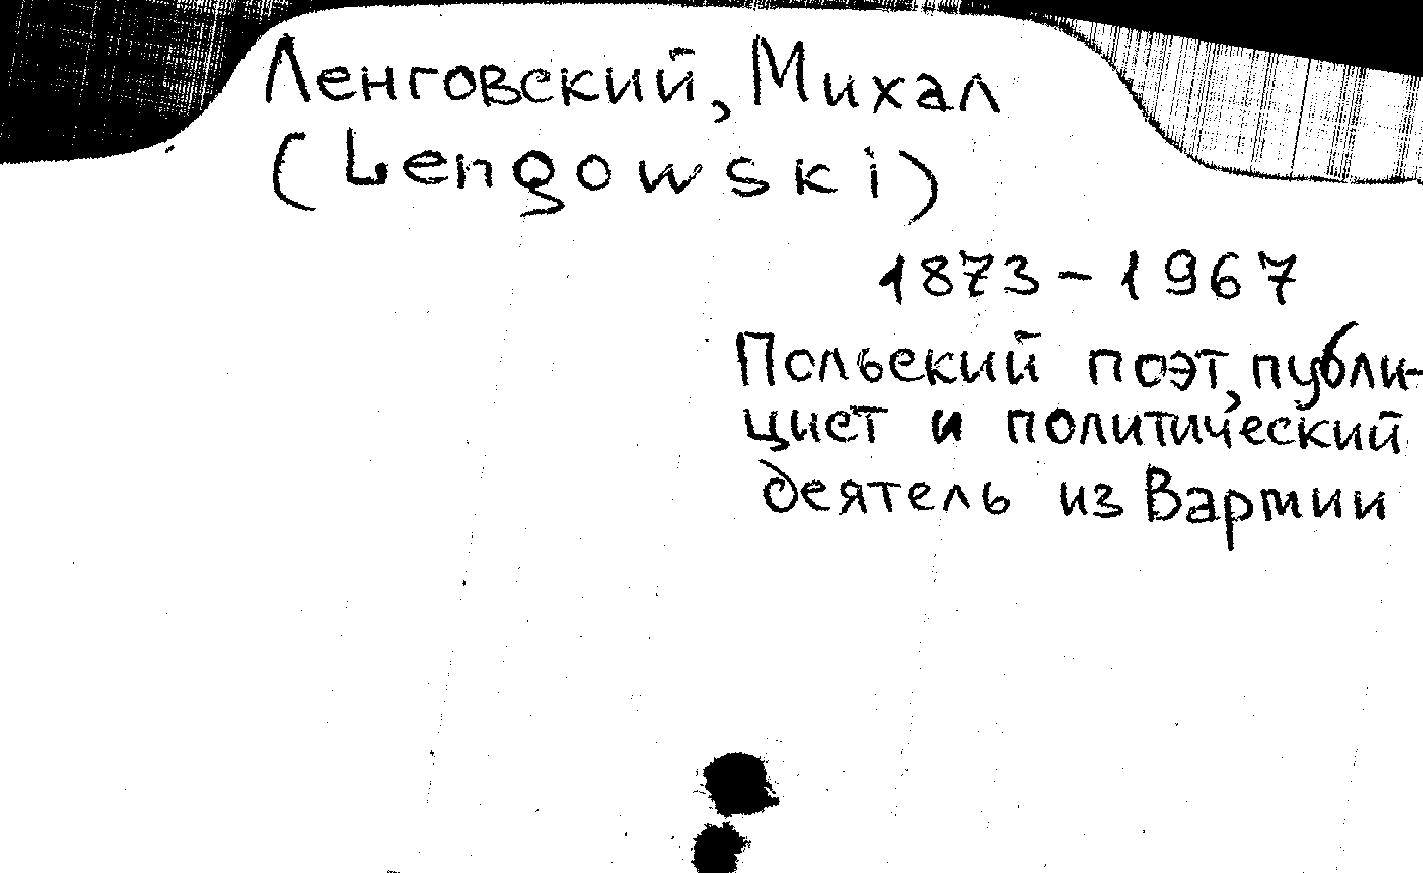 Ленговский, Михал
(Lengowski)
1873-1967
Польский поэт, публи-
цист и политический
деятель из Вармии